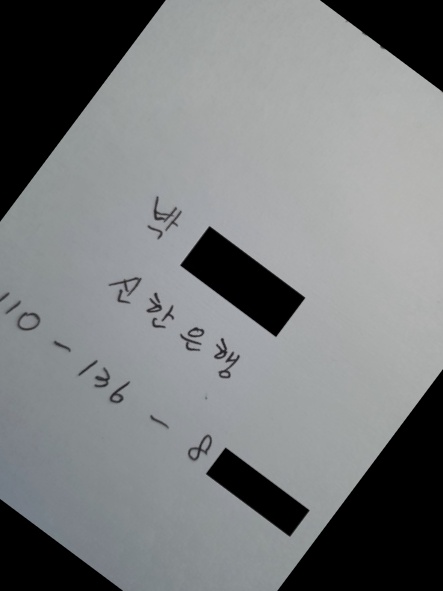 박
신한은행
110-136-8